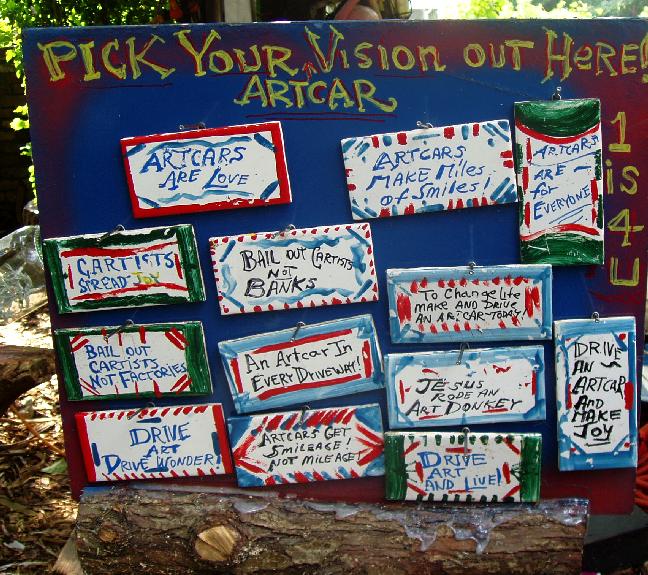 PICK YOUR VISION OUT HERE!
ARTCAR
1
is
4
U
ARTCARS
ARE LOVE
ARTCARS
MAKE MILES
OF SMILES!
ARTCARS
ARE
FOR
EVERYONE
CARTISTS
SPREAD JOY
BAIL OUT CARTISTS
NOT
BANKS
TO CHANGE LIFE
MAKE AND DRIVE
AN ARTCAR-TODAY!
BAIL OUT
CARTISTS
NOT FACTORIES
An Artcar In
EVERY DRIVEWAY!
JESUS
RODE AN
ART DONKEY
DRIVE
AN
ARTCAR
AND
MAKE
JOY
DRIVE
ART
DRIVE WONDER!
ARTCARS GET
SMILEAGE!
NOT MILEAGE!
DRIVE
ART
AND LIVE!